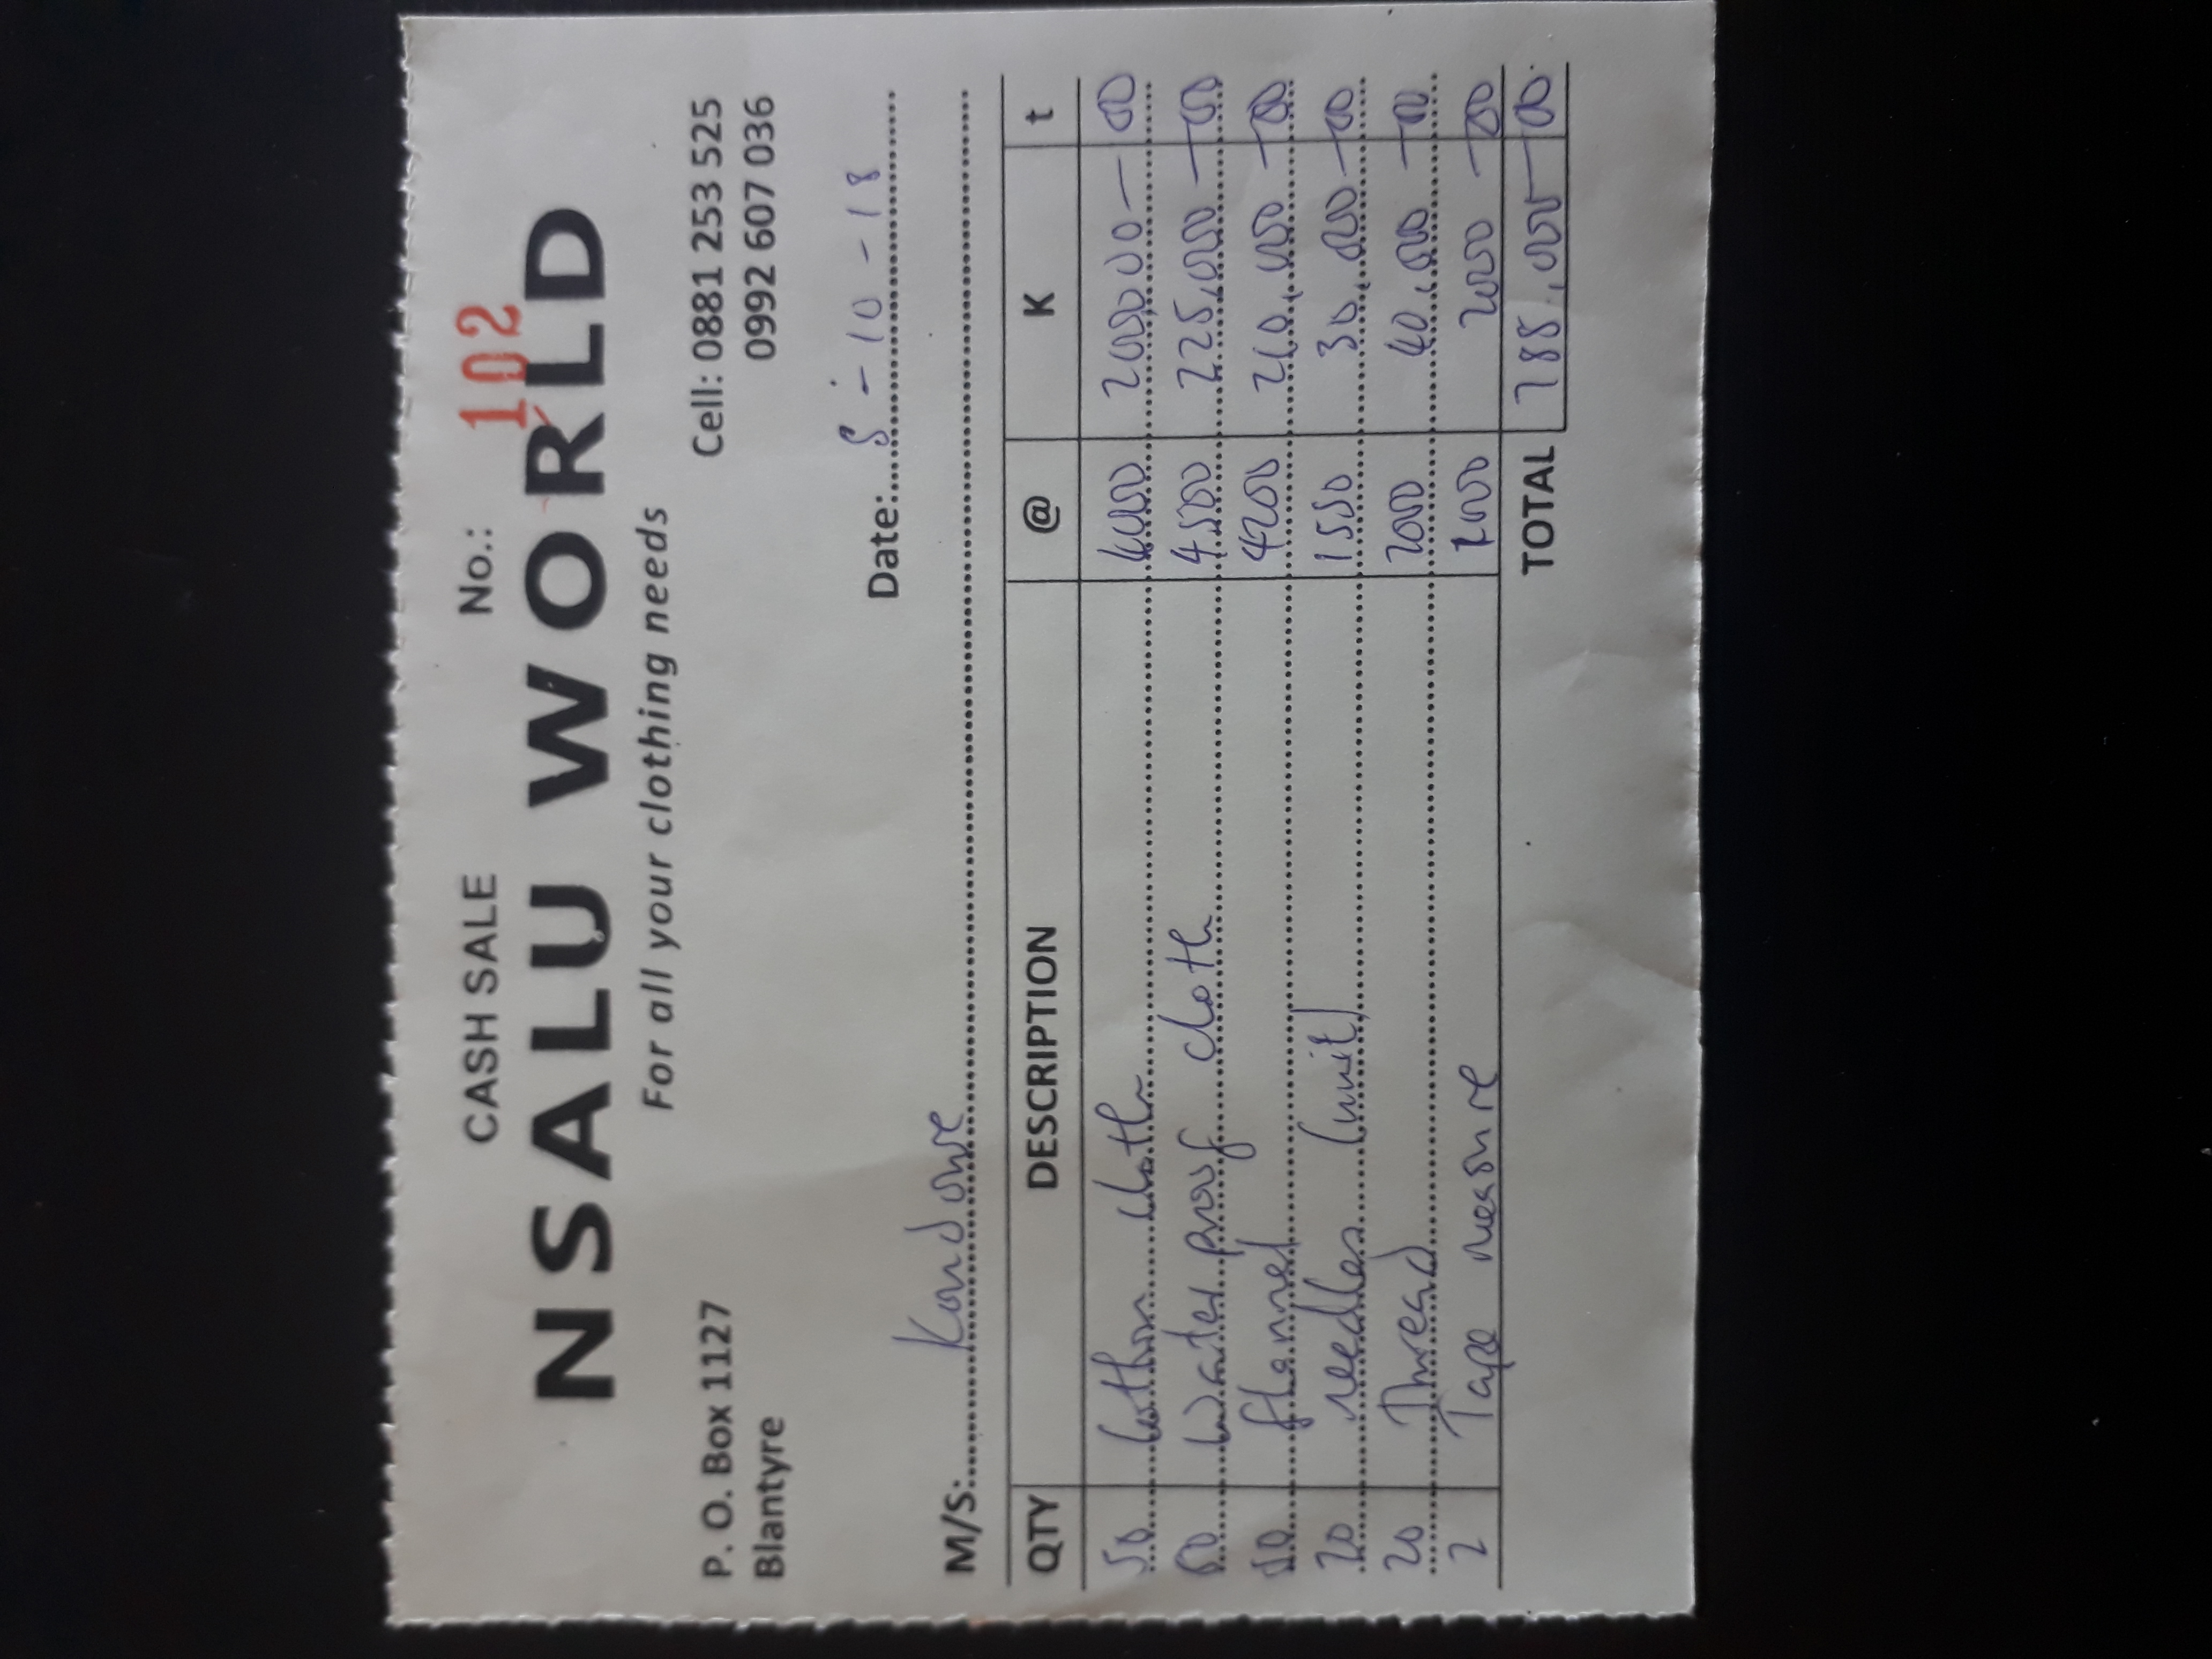 CASH SALE No.: 102
NSALU WORLD
For all your clothing needs
P. O. Box 1127 Cell: 0881 253 525
Blantyre 0992 607 036
Date: 5-10-18
M/S: Kondowe
QTY DESCRIPTION @ K t
50 Cotton cloth 4000 200,000 - 00
50 Water proof cloth 4500 225,000 - 00
50 flannel 4200 210,000 - 00
20 needles (unit) 1550 30,000 - 00
20 Thread 2000 40,000 - 00
2 Tape measure 1000 2000 - 00
TOTAL 788,000 - 00